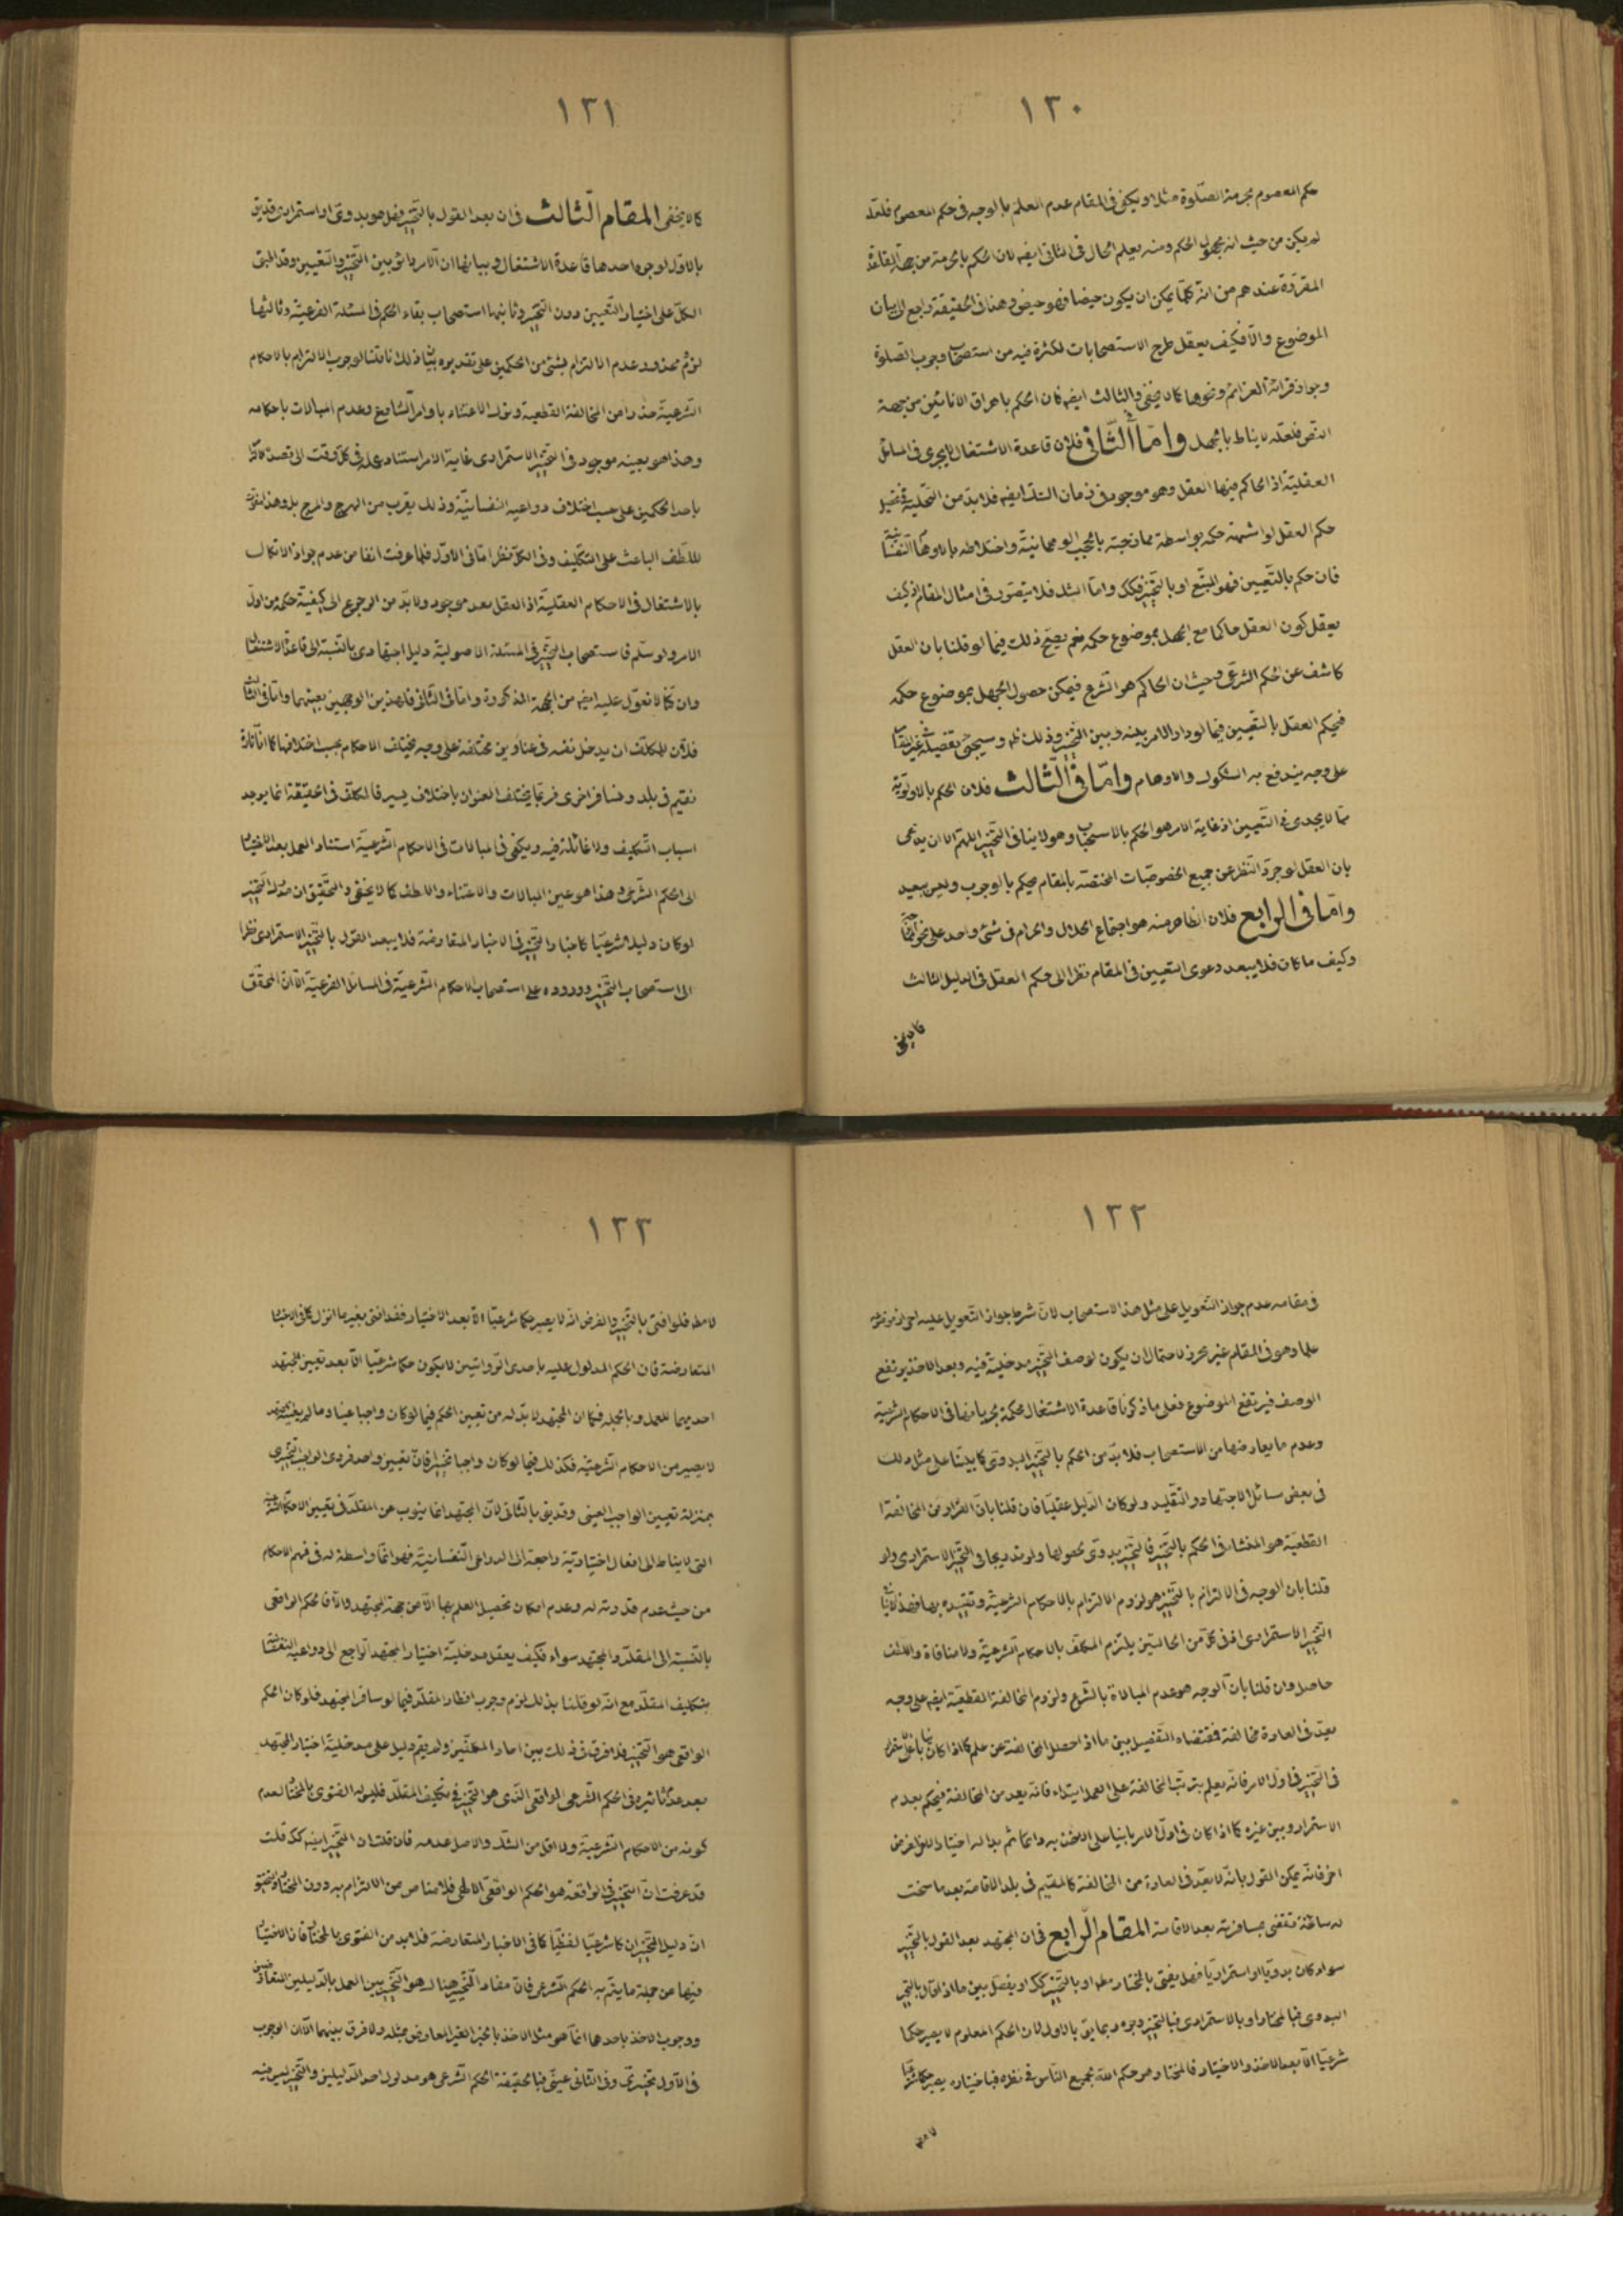 ١٣٠
حكم المعصوم بحرمة الصّلوة مثلا ويكفى فى المقام عدم العلم بالوجه فى حكم المعصوم فلعلّه
لم يكن من حيث انه مجهول الحكم ومنه يعلم الحال فى الثانى ايضا لان الحكم بالحرمة من جهة القاعدة
المقرّرة عندهم من انّه كلّما يمكن ان يكون حيضا فهو حيض وهذا فى الحقيقة راجع الى بيان
الموضوع والّا فكيف يعقل طرح الاستصحابات لكثرة فيه من استصحاب وجوب الصلوة
وجواز قرائة العزائم ونحوها كما لا يخفى والثالث ايضا فان الحكم باهراق الانائين من جهة
النصّ فلعلّه لا يناط بالجهل وامّا الثّانى فلان قاعدة الاشتغال لا يجرى فى المسائل
العقليّة اذ الحاكم فيها العقل وهو موجود فى زمان الشك ايضا فلا بدّ من التخلية فى تحصيل
حكم العقل لو اشتبه حكمه بواسطة ممازجته بالحجب الوهمانيّة واختلاطه بالاوهام النفسانيّة
فان حكم بالتّعيين فهو المتّبع او بالتّخيير فكك وامّا الشك فلا يتصوّر فى امثال المقام اذ كيف
يعقل كون العقل حاكما مع الجهل بموضوع حكمه نعم يصحّ ذلك فيما لو قلنا بان العقل
كاشف عن الحكم الشرعى وحيث ان الحاكم هو الشرع فيمكن حصول الجهل بموضوع حكمه
فيحكم العقل بالتّعيين فيما لو دار الامر بينه وبين التّخيير وذلك ظ وسيجئ تفصيله فى غير المقام
على وجه يندفع به الشكوك والاوهام وامّا فى الثّالث فلان الحكم بالاولويّة
ممّا لا يجدى فى التعيين اذ غاية الامر هو الحكم بالاستحباب وهو لا ينافى التّخيير اللهم الا ان يدّعى
بان العقل لو جرّد النّظر عن جميع الخصوصيّات المختصّة بالمقام يحكم بالوجوب وليس ببعيد
وامّا فى الرابع فلان الظاهر منه هو اجتماع الحلال والحرام فى شئ واحد على نحو
وكيف ما كان فلا يبعد دعوى التعيين فى المقام نظرا الى حكم العقل فى الدليل الثالث
كما لا يخفى
١٣١
كما لا يخفى المقام الثّالث فى ان بعد القول بالتّخيير فهل هو بدوىّ او استمرارى قد يق
بالاوّل لوجوه احدها قاعدة الاشتغال وبيانها ان الامر دائر بين التّخيير والتّعيين وقد المبنى
الكلّ على اختيار التّعيين دون التّخيير وثانيها استصحاب بقاء الحكم فى المسئلة الفرعيّة وثالثها
لزوم محذور عدم الالتزام بشئ من الحكمين على تقديره بثّا ذلك انا قلنا لوجوب الالتزام بالاحكام
الشّرعيّة حذرا من المخالفة القطعية وترك الاعتناء باوامر الشّارع وعدم المبالات باحكامه
وهذا هو بعينه موجود فى التّخيير الاستمرارى غاية الامر استناد عمله فى كلّ وقت الى قصده
باحد الحكمين على حسب اختلاف دواعيه النفسانيّة وذلك يقرب من الهرج والمرج بل وهذا مفوّت
للّطف الباعث على التّكليف وفى الكلّ نظر امّا فى الاوّل فلما عرفت انفا من عدم جواز الاتكال
بالاشتغال فى الاحكام العقليّة اذ العقل بعد موجود ولا بدّ من الرجوع الى كيفيّة حكمه من اول
الامر ولو سلّم فاستصحاب التّخيير فى المسئلة الاصوليّة دليل اجتهادى بالنّسبة الى قاعدة الاشتغال
وان كنّا لا نعوّل عليه ايضا من الجهة المذكورة وامّا فى الثّانى فلهذين الوجهين بعينهما وامّا فى الثالث
فلانّ للمكلّف ان يدخل نفسه فى عناوين مختلفة على وجه يختلف الاحكام بحسب اختلافها كما انّا تارة
نقيم فى بلد ونسافر اخرى فربّما يختلف العنوان باختلاف يسير فالمكلّف فى الحقيقة انما يوجد
اسباب التّكليف ولا غائلة فيه ويكفى فى المبالات فى الاحكام الشّرعيّة استناد العمل بعد الاختيار
الى الحكم الشّرعى وهذا هو عين المبالات والاعتناء واللطف كما لا يخفى والتّحقيق ان مدرك التّخيير
لو كان دليلا شرعيّا كاخبار التّخيير فى الاخبار المتعارضة فلا يبعد القول بالتّخيير الاستمرارى نظرا
الى استصحاب التّخيير ووروده على استصحاب الاحكام الشّرعيّة فى المسائل الفرعيّة الّا ان المحقّق
١٣٢
فى مقامه عدم جواز التّعويل على مثل هذا الاستصحاب لانّ شرط جواز التّعويل عليه احراز موضوعه
علما وهو فى المقام غير محرز لاحتمال ان يكون لوصف التّخيير مدخليّة فيه وبعد الاخذ يرتفع
الوصف فيرتفع الموضوع فعلى ما ذكرنا قاعدة الاشتغال محكمة بجريانها فى الاحكام الشرعيّة
وعدم ما يعارضها من الاستصحاب فلا بدّ من الحكم بالتّخيير البدوىّ كما بيّنّا على مثل ذلك
فى بعض مسائل الاجتهاد والتّقليد ولو كان الدّليل عقليّا فان قلنا بانّ الفرار من المخالفة
القطعيّة هو المنشاء فى الحكم بالتّخيير فالتّخيير بدوىّ لحصولها ولو تدريجا فى التّخيير الاستمرارى ولو
قلنا بان الوجه فى الالتزام بالتّخيير هو لزوم الالتزام بالاحكام الشرعيّة وتقييده بها فهذا لا ينافى
التّخيير الاستمرارى اذ فى كلّ من الحالتين يلتزم المكلّف بالاحكام الشّرعيّة ولا منافاة واللّطف
حاصل وان قلنا بانّ الوجه هو عدم المبالاة بالشّرع ولزوم المخالفة القطعيّة ايضا على وجه
يعدّ فى العادة مخالفة فمقتضاه التّفصيل بين ما اذا حصل المخالفة عن علم كما اذا كان بانيا على
فى التّخيير فى اوّل الامر فانّه يعلم بترتّب المخالفة على العمل ابتداء فانّه يعد من المخالفة فيحكم بعدم
الاستمرار وبين غيره كما اذا كان فى اوّل الامر بانيا على الاخذ به دائما ثم بدا له اختيار الاخر لغرض
اخر فانّه يمكن القول بانّه لا يعدّ فى العادة من المخالفة كالمقيم فى بلد الاقامة بعد ما سنحت
له سانحة فتقضى بمسافرته بعد الاقامة المقام الرّابع فى ان المجتهد بعد القول بالتّخيير
سواء كان بدويّا او استمراريّا فهل يفتى بالمختار مط او بالتّخيير كك او يفصّل بين ما اذا قال بالتّخيير
البدوى فبالمختار او بالاستمرارى فبالتّخيير وجوه ربما يق بالاول لان الحكم المعلوم لا يصير حكما
شرعيّا الّا بعد الاخذ والاختيار فالمختار هو حكم اللّه لجميع النّاس فى نظره فباختياره يصير حكما شرعيّا
لا مط
١٣٣
لا مط فلو افتى بالتّخيير والفرض انّه لا يصير حكما شرعيّا الّا بعد الاختيار فقد افتى بغير ما انزل كما فى الاخبار
المتعارضة فان الحكم المدلول عليه باحدى الرّوايتين لا يكون حكما شرعيّا الّا بعد تعيين المجتهد
احديهما للعمل وبالجملة فكما ان المجتهد لا بدّ له من تعيين الحكم فيما لو كان واجبا عينيا وما لم يعيّنه المجتهد
لا يصير من الاحكام الشّرعيّة فكذلك فيما لو كان واجبا تخييريّا فانّ تعيين واحد فردى الواجب التّخييرى
بمنزلة تعيين الواجب العينى وقد يق بالثّانى لانّ المجتهد انما ينوب عن المقلّد فى تعيين الاحكام الشرعيّة
التى لا يناط الى افعال اختياريّة راجعة الى الدواعى النّفسانيّة فهو انّما واسطة له فى فهم الاحكام
من حيث عدم قدرته له وعدم امكان تحصيل العلم بها الّا من جهة المجتهد والّا فالحكم الواقعى
بالنّسبة الى المقلّد والمجتهد سواء فكيف يعقل مدخليّة اختيار المجتهد الرّاجع الى دواعيه النفسانيّة
بتكليف المقلّد مع انّه لو قلنا بذلك لزم وجوب افطار المقلّد فيما لو سافر المجتهد فلو كان الحكم
الواقعى هو التّخيير فلا فرق فى ذلك بين احاد المكلّفين ولم يقم دليل على مدخليّة اختيار المجتهد
بعد عدم تاثيره فى الحكم الشّرعى الواقعى الّذى هو التّخيير فى تكليف المقلّد فليس له الفتوى بالمختار لعدم
كونه من الاحكام الشّرعيّة ولا اقل من الشكّ والاصل عدمه فان قلت ان التّخيير ايضا كك قلت
قد عرفت انّ التّخيير فى الواقعة هو الحكم الواقعىّ الالهى فلا مناص من الالتزام به دون المختار
انّ دليل التّخيير ان كان شرعيّا لفظيّا كما فى الاخبار المتعارضة فلا بدّ من الفتوى بالمختار فان الاختيار
فيها من جملة ما يتمّ به الحكم الشّرعى فانّ مفاد التّخيير هنالك هو التّخيير بين العمل بالدّليلين المتعارضين
ووجوب الاخذ باحدهما انّما هو مثل الاخذ بالخبر الغير المعارض بمثله ولا فرق بينهما الّا ان الوجوب
فى الاوّل تخييرىّ وفى الثّانى عينىّ فبالحقيقة الحكم الشّرعى هو مدلول احد الدّليلين والتّخيير ليس فيه